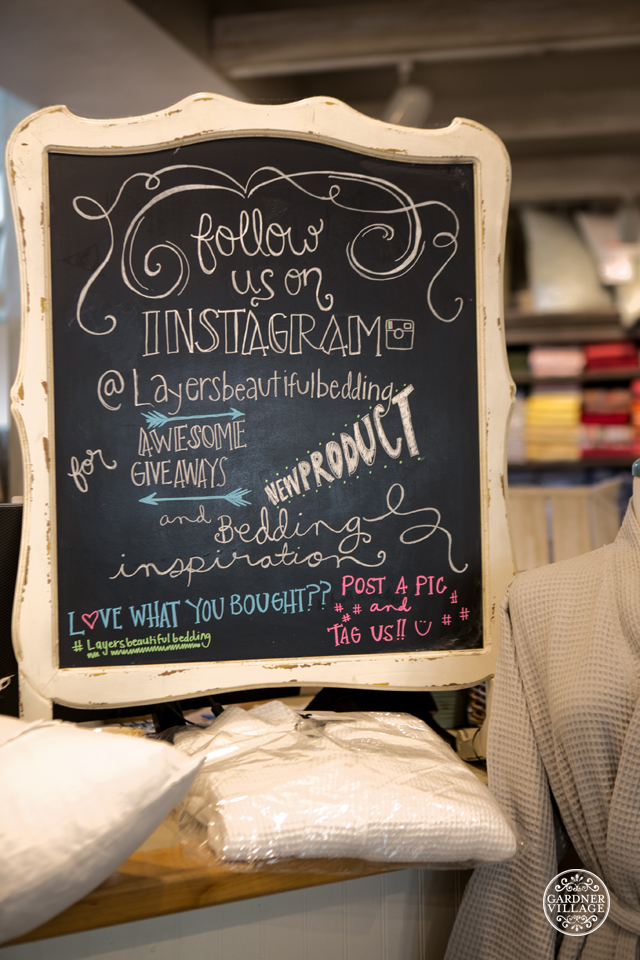 follow
us on
INSTAGRAM
@Layersbeautifulbedding
for AWESOME
GIVEAWAYS
NEW PRODUCT
and Bedding
inspiration
LOVE WHAT YOU BOUGHT??
#Layersbeautifulbedding
POST A PIC
# # and #
# TAG US!! # #
GARDNER
VILLAGE